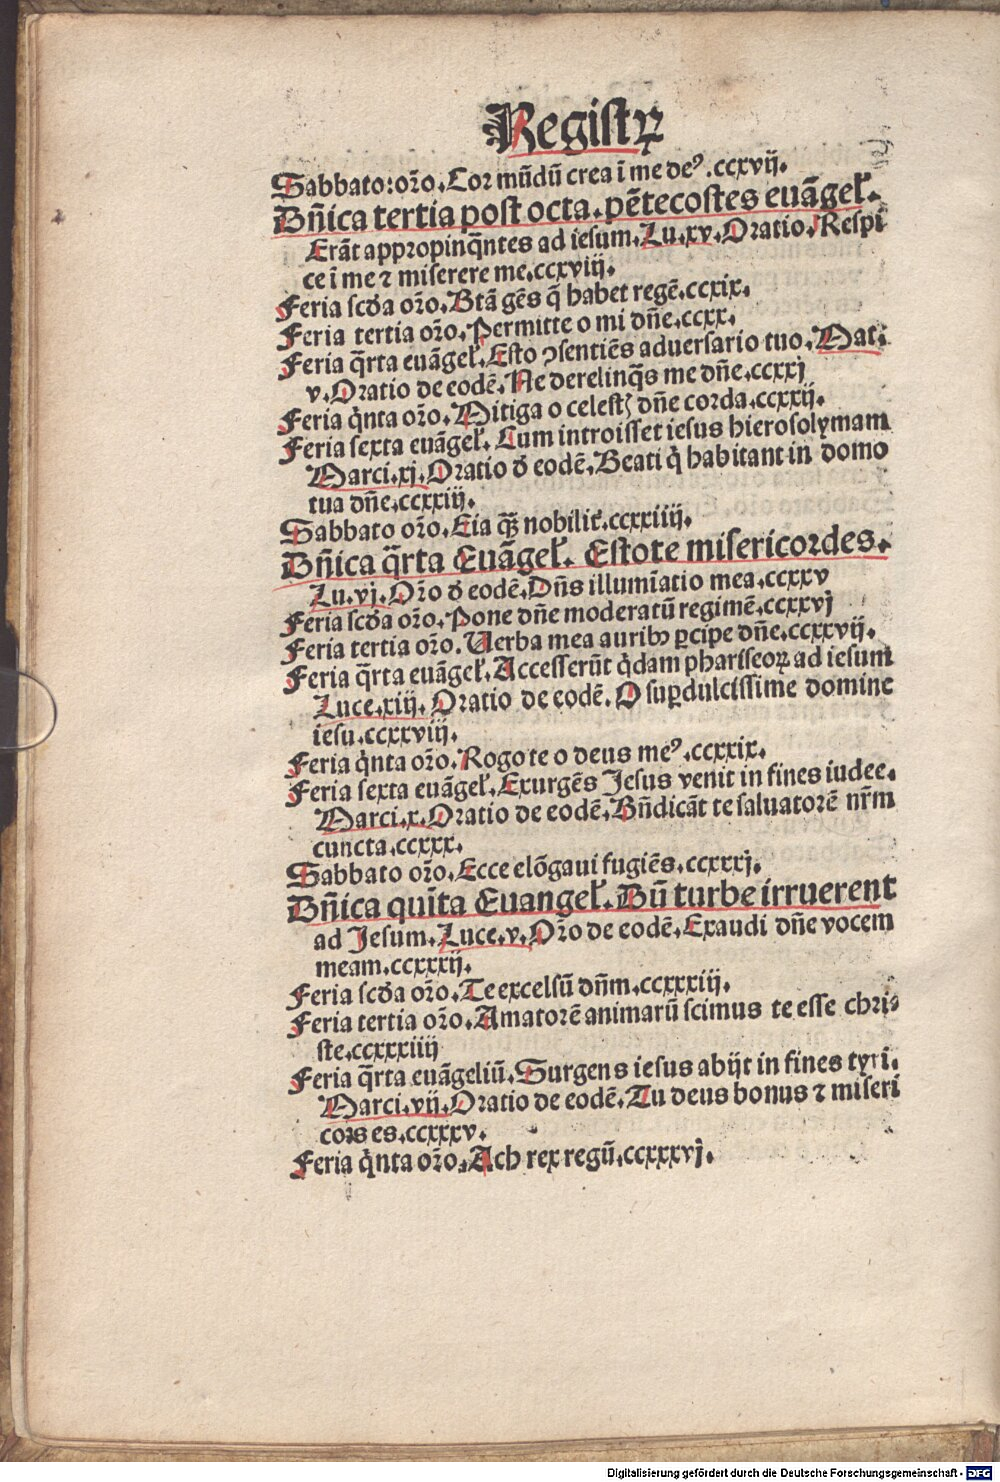 Registꝝ
Sabbato: oꝛ̄o. Coꝛ mūdū crea ī me deꝰ. ccxvij.
Dn̄ica tertia post octa. pētecostes euāgeł.
Erāt appropinq̄ntes ad iesum. Lu. xv. Oratio. Respi
ce ī me ⁊ miserere me. ccxviij.
Feria scd̄a oꝛ̄o. Btā gēs q̄ habet regē. ccxix.
Feria tertia oꝛ̄o. Permitte o mi dn̄e. ccxx.
Feria q̄rta euāgeł. Esto ꝯsentiēs aduersario tuo. Mat.
v. Oratio de eodē. Ne derelinq̄s me dn̄e. ccxxj
Feria q̇nta oꝛ̄o. Mitiga o celestꝭ dn̄e corda. ccxxij.
Feria sexta euāgeł. Cum introisset iesus hierosolymam
Marci. xj. Oratio đ eodē. Beati q̇ habitant in domo
tua dn̄e. ccxxiij.
Sabbato oꝛ̄o. Eia qꝫ̄ nobilit̛. ccxxiiij.
Dn̄ica q̄rta Euāgeł. Estote misericoꝛdes.
Lu. vj. Oꝛ̄o đ eodē. Dn̄s illumīatio mea. ccxxv
Feria scd̄a oꝛ̄o. Pone dn̄e moderatū regimē. ccxxvj
Feria tertia oꝛ̄o. Uerba mea auribꝰ ꝑcipe dn̄e. ccxxvij.
Feria q̄rta euāgeł. Accesserūt q̇dam phariseoꝝ ad iesum
Luce. xiij. Oratio de eodē. O suꝑdulcissime domine
iesu. ccxxviij.
Feria q̇nta oꝛ̄o. Rogo te o deus meꝰ. ccxxix.
Feria sexta euāgeł. Exurgēs Jesus venit in fines iudee.
Marci. x. Oratio de eodē. Bn̄dicāt te saluatorē nr̄m
cuncta. ccxxx.
Sabbato oꝛ̄o. Ecce elōgaui fugiēs. ccxxxj.
Dn̄ica quīta Euangeł. Dū turbe irruerent
ad Jesum. Luce. v. Oꝛ̄o de eodē. Exaudi dn̄e vocem
meam. ccxxxij.
Feria scd̄a oꝛ̄o. Te excelsū dn̄m. ccxxxiij.
Feria tertia oꝛ̄o. Amatorē animarū scimus te esse chri⸗
ste. ccxxxiiij
Feria q̄rta euāgeliū. Surgens iesus abijt in fines tyri.
Marci. vij. Oratio de eodē. Tu deus bonus ⁊ miseri
coꝛs es. ccxxxv.
Feria q̇nta oꝛ̄o. Ach rex regū. ccxxxvj.
Digitalisierung gefördert durch die Deutsche Forschungsgemeinschaft - DFG